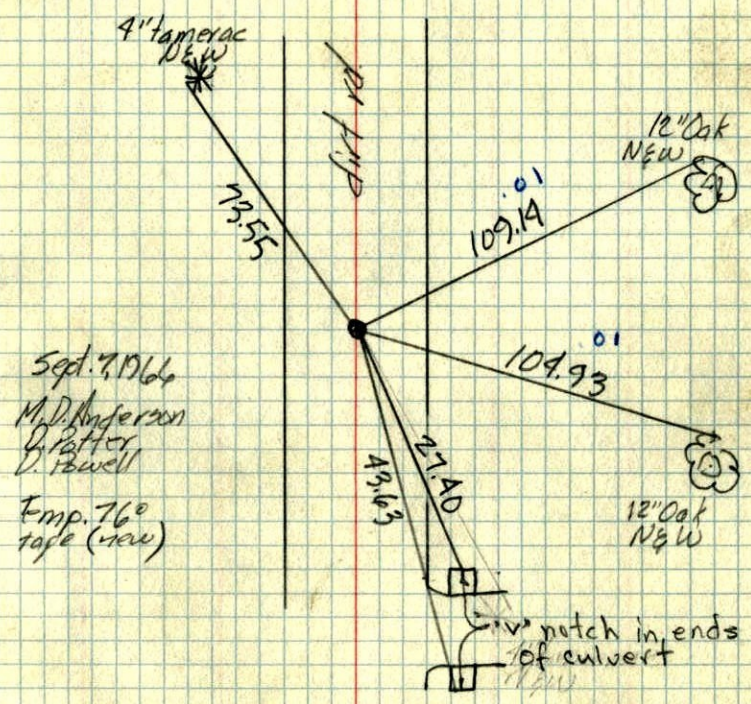 4" tamerac
N&W
dirt rd.
12" Oak
N&W
.01
109.14
73.55
.01
104.93
Sept. 7, 1966
M.D. Anderson
D. Potter
D. Powell
Temp. 76°
tape (new)
43.63
27.40
12" Oak
N&W
"v" notch in ends
of culvert
N&W